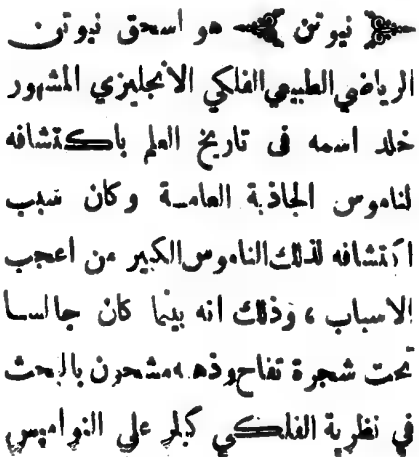 نيوتن هو اسحق نيوتن
الرياضي الطبيعي الفلكي الانجليزي المشهور
خلد اسمه في تاريخ العلم باكتشافه
لناموس الجاذبة العامة وكان سبب
اكتشافه لذلك الناموس الكبير من اعجب
الاسباب ، وذلك انه بينما كان جالسا
تحت شجرة تفاح وذهنه مشحون بالبحث
في نظرية الفلكي كبلر على النواميس